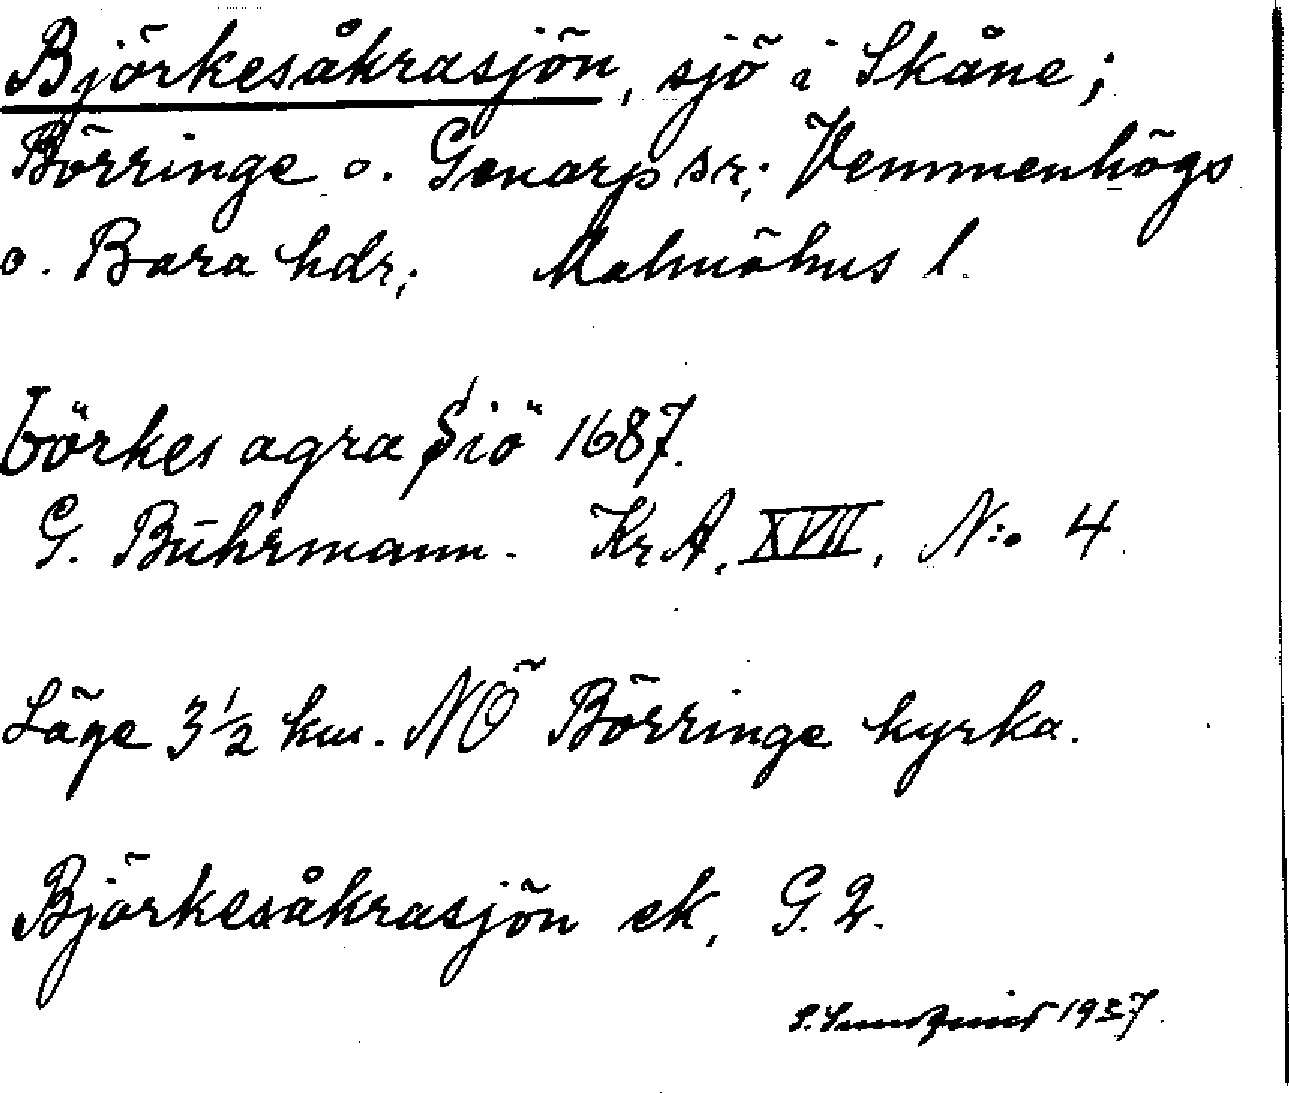 Björkesåkrasjön, sjö i Skåne;
Börringe o. Genarp sr; Vemmenhögs
o. Bara hdr; Malmöhus l.
börkes agra Siö 1687.
G. Buhrmann. KrA, XVII, N:o 4
Läge 3½ km. NÖ Börringe kyrka.
Björkesåkrasjön ek, G. 2.
1937.